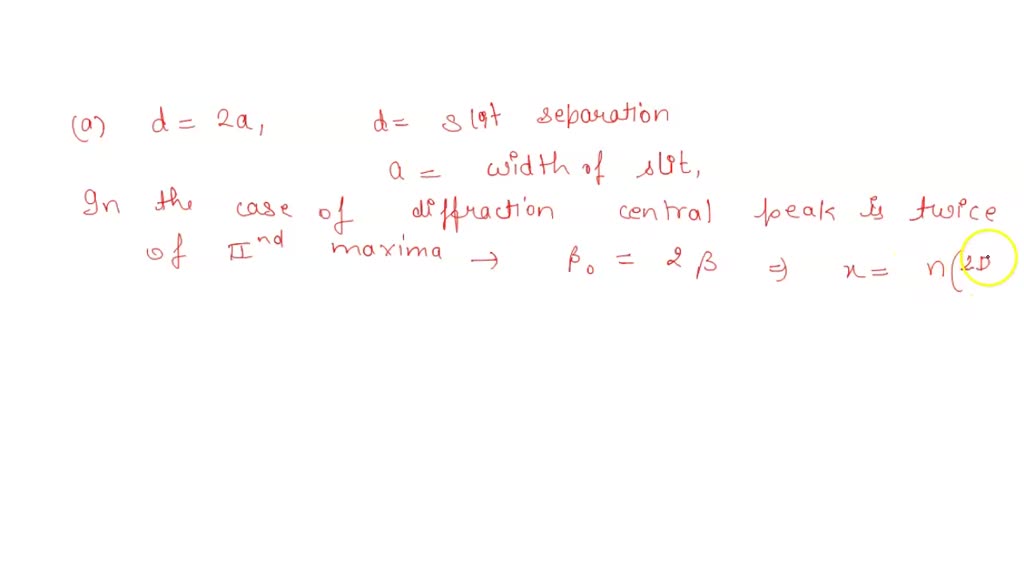 (a) d = 2a, d = slit separation
a = width of slit,
In the case of diffraction central peak is twice
of IInd maxima → β₀ = 2β ⇒ x = n(2D